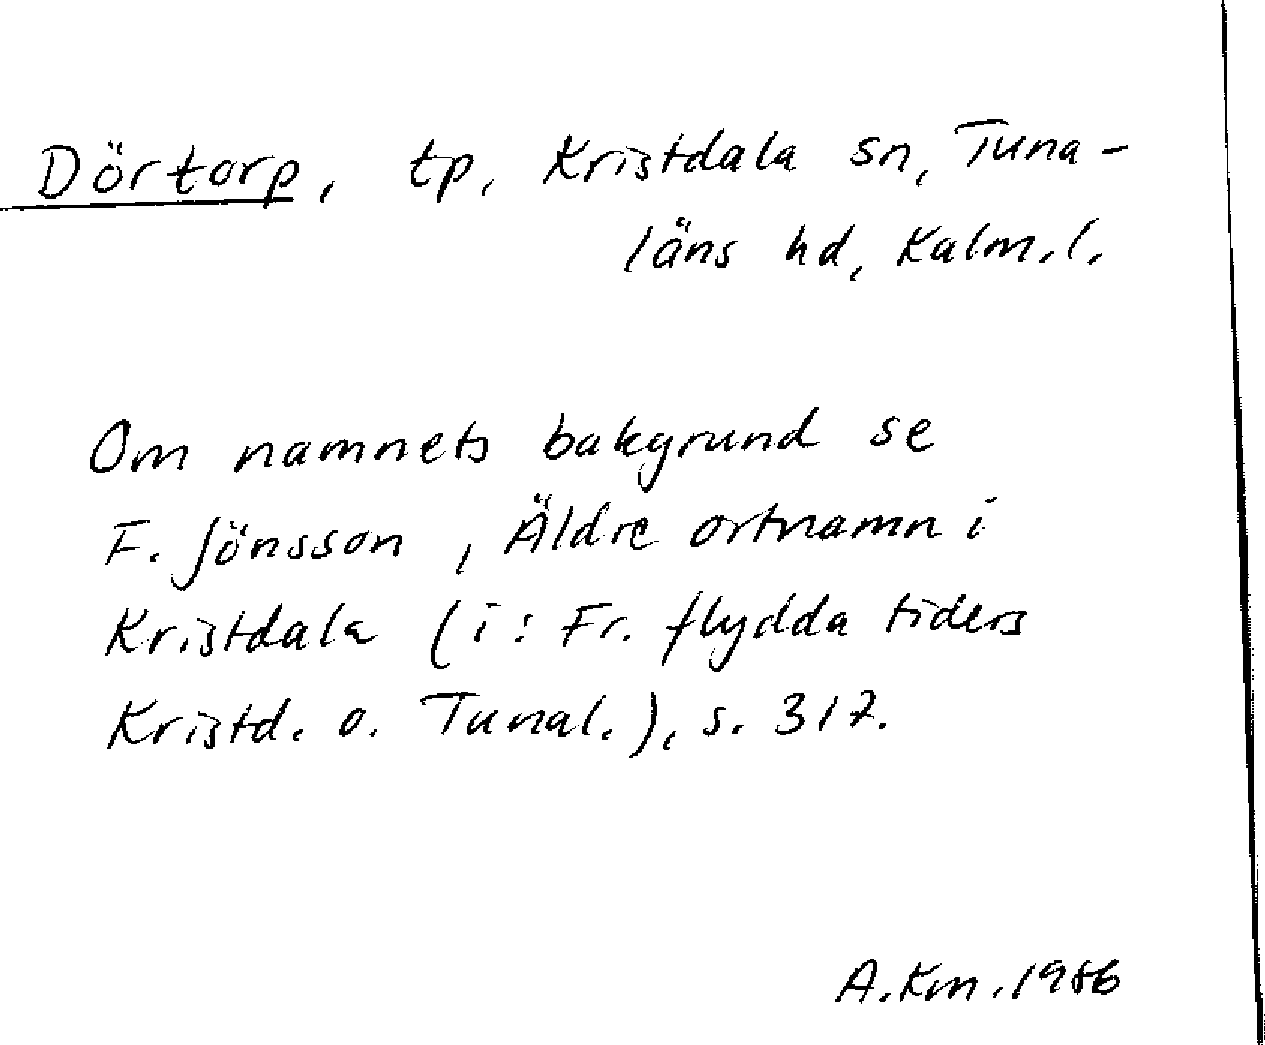 Dörtorp, tp, Kristdala sn, Tuna-
läns hd, Kalm.l.
Om namnets bakgrund se
F. Jönsson, Äldre ortnamn i
Kristdala (i: Fr. flydda tiders
Kristd. o. Tunal.), s. 317.
A.Km.1986